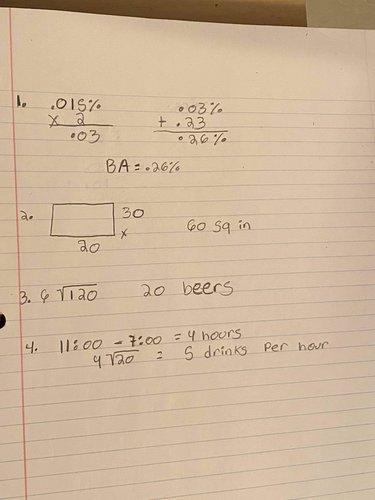 1. .015% .03%
x 2 + .23
.03 .26%
BA = .26%
2. 30
x 60 sq in
20
3. 6√120 20 beers
4. 11:00 - 7:00 = 4 hours
4√20 = 5 drinks per hour